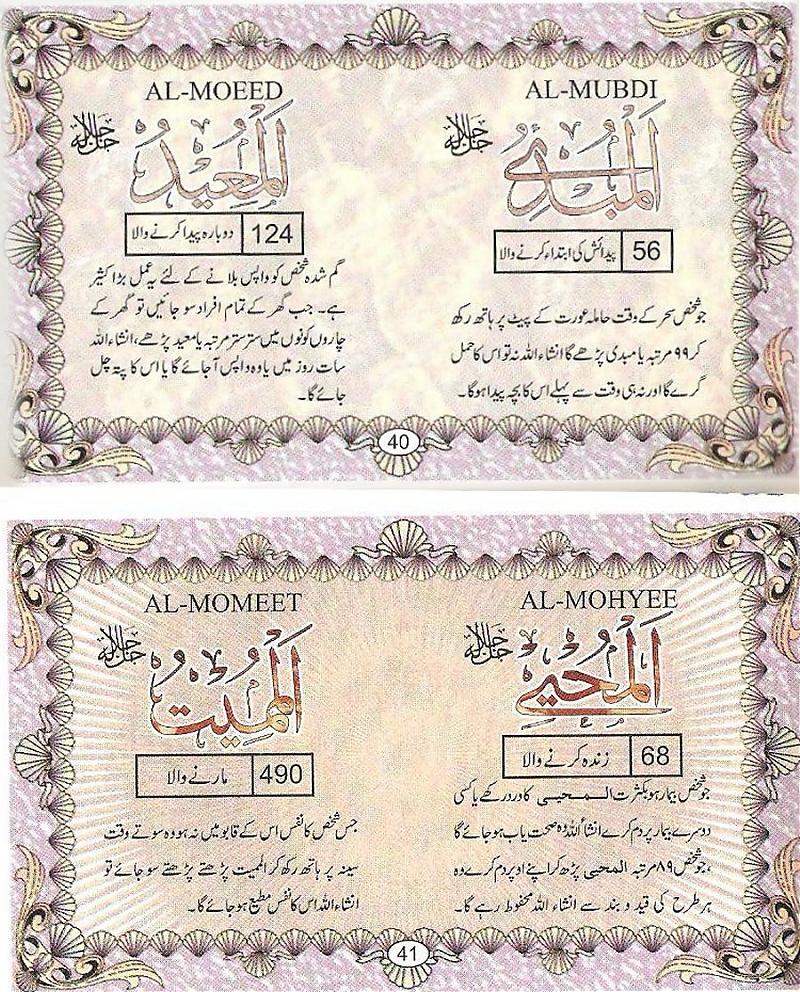 AL-MUBDI
اَلْمُبْدِئُ جل جلالہ
56 پیدائش کی ابتداء کرنے والا
جو شخص سحر کے وقت حاملہ عورت کے پیٹ پر ہاتھ رکھ
کر ۹۹ مرتبہ یا مبدی پڑھے گا انشاء اللہ نہ تو اس کا حمل
گرے گا اور نہ ہی وقت سے پہلے اس کا بچہ پیدا ہوگا۔
AL-MOEED
اَلْمُعِيْدُ جل جلالہ
124 دوبارہ پیدا کرنے والا
گم شدہ شخص کو واپس بلانے کے لئے یہ عمل بڑا کثیر
ہے۔ جب گھر کے تمام افراد سو جائیں تو گھر کے
چاروں کونوں میں ستر ستر مرتبہ یا معید پڑھے، انشاء اللہ
سات روز میں یا وہ واپس آ جائے گا یا اس کا پتہ چل
جائے گا۔
40
AL-MOHYEE
اَلْمُحْيِیْ جل جلالہ
68 زندہ کرنے والا
جو شخص بیمار ہو بکثرت المحیی کا ورد رکھے یا کسی
دوسرے بیمار پر دم کرے انشاء اللہ وہ صحت یاب ہو جائے گا
،جو شخص ۸۹ مرتبہ المحیی پڑھ کر اپنے اوپر دم کرے وہ
ہر طرح کی قید و بند سے انشاء اللہ محفوظ رہے گا۔
AL-MOMEET
اَلْمُمِيْتُ جل جلالہ
490 مارنے والا
جس شخص کا نفس اس کے قابو میں نہ ہو وہ سوتے وقت
سینہ پر ہاتھ رکھ کر الممیت پڑھتے پڑھتے سو جائے تو
انشاء اللہ اس کا نفس مطیع ہو جائے گا۔
41